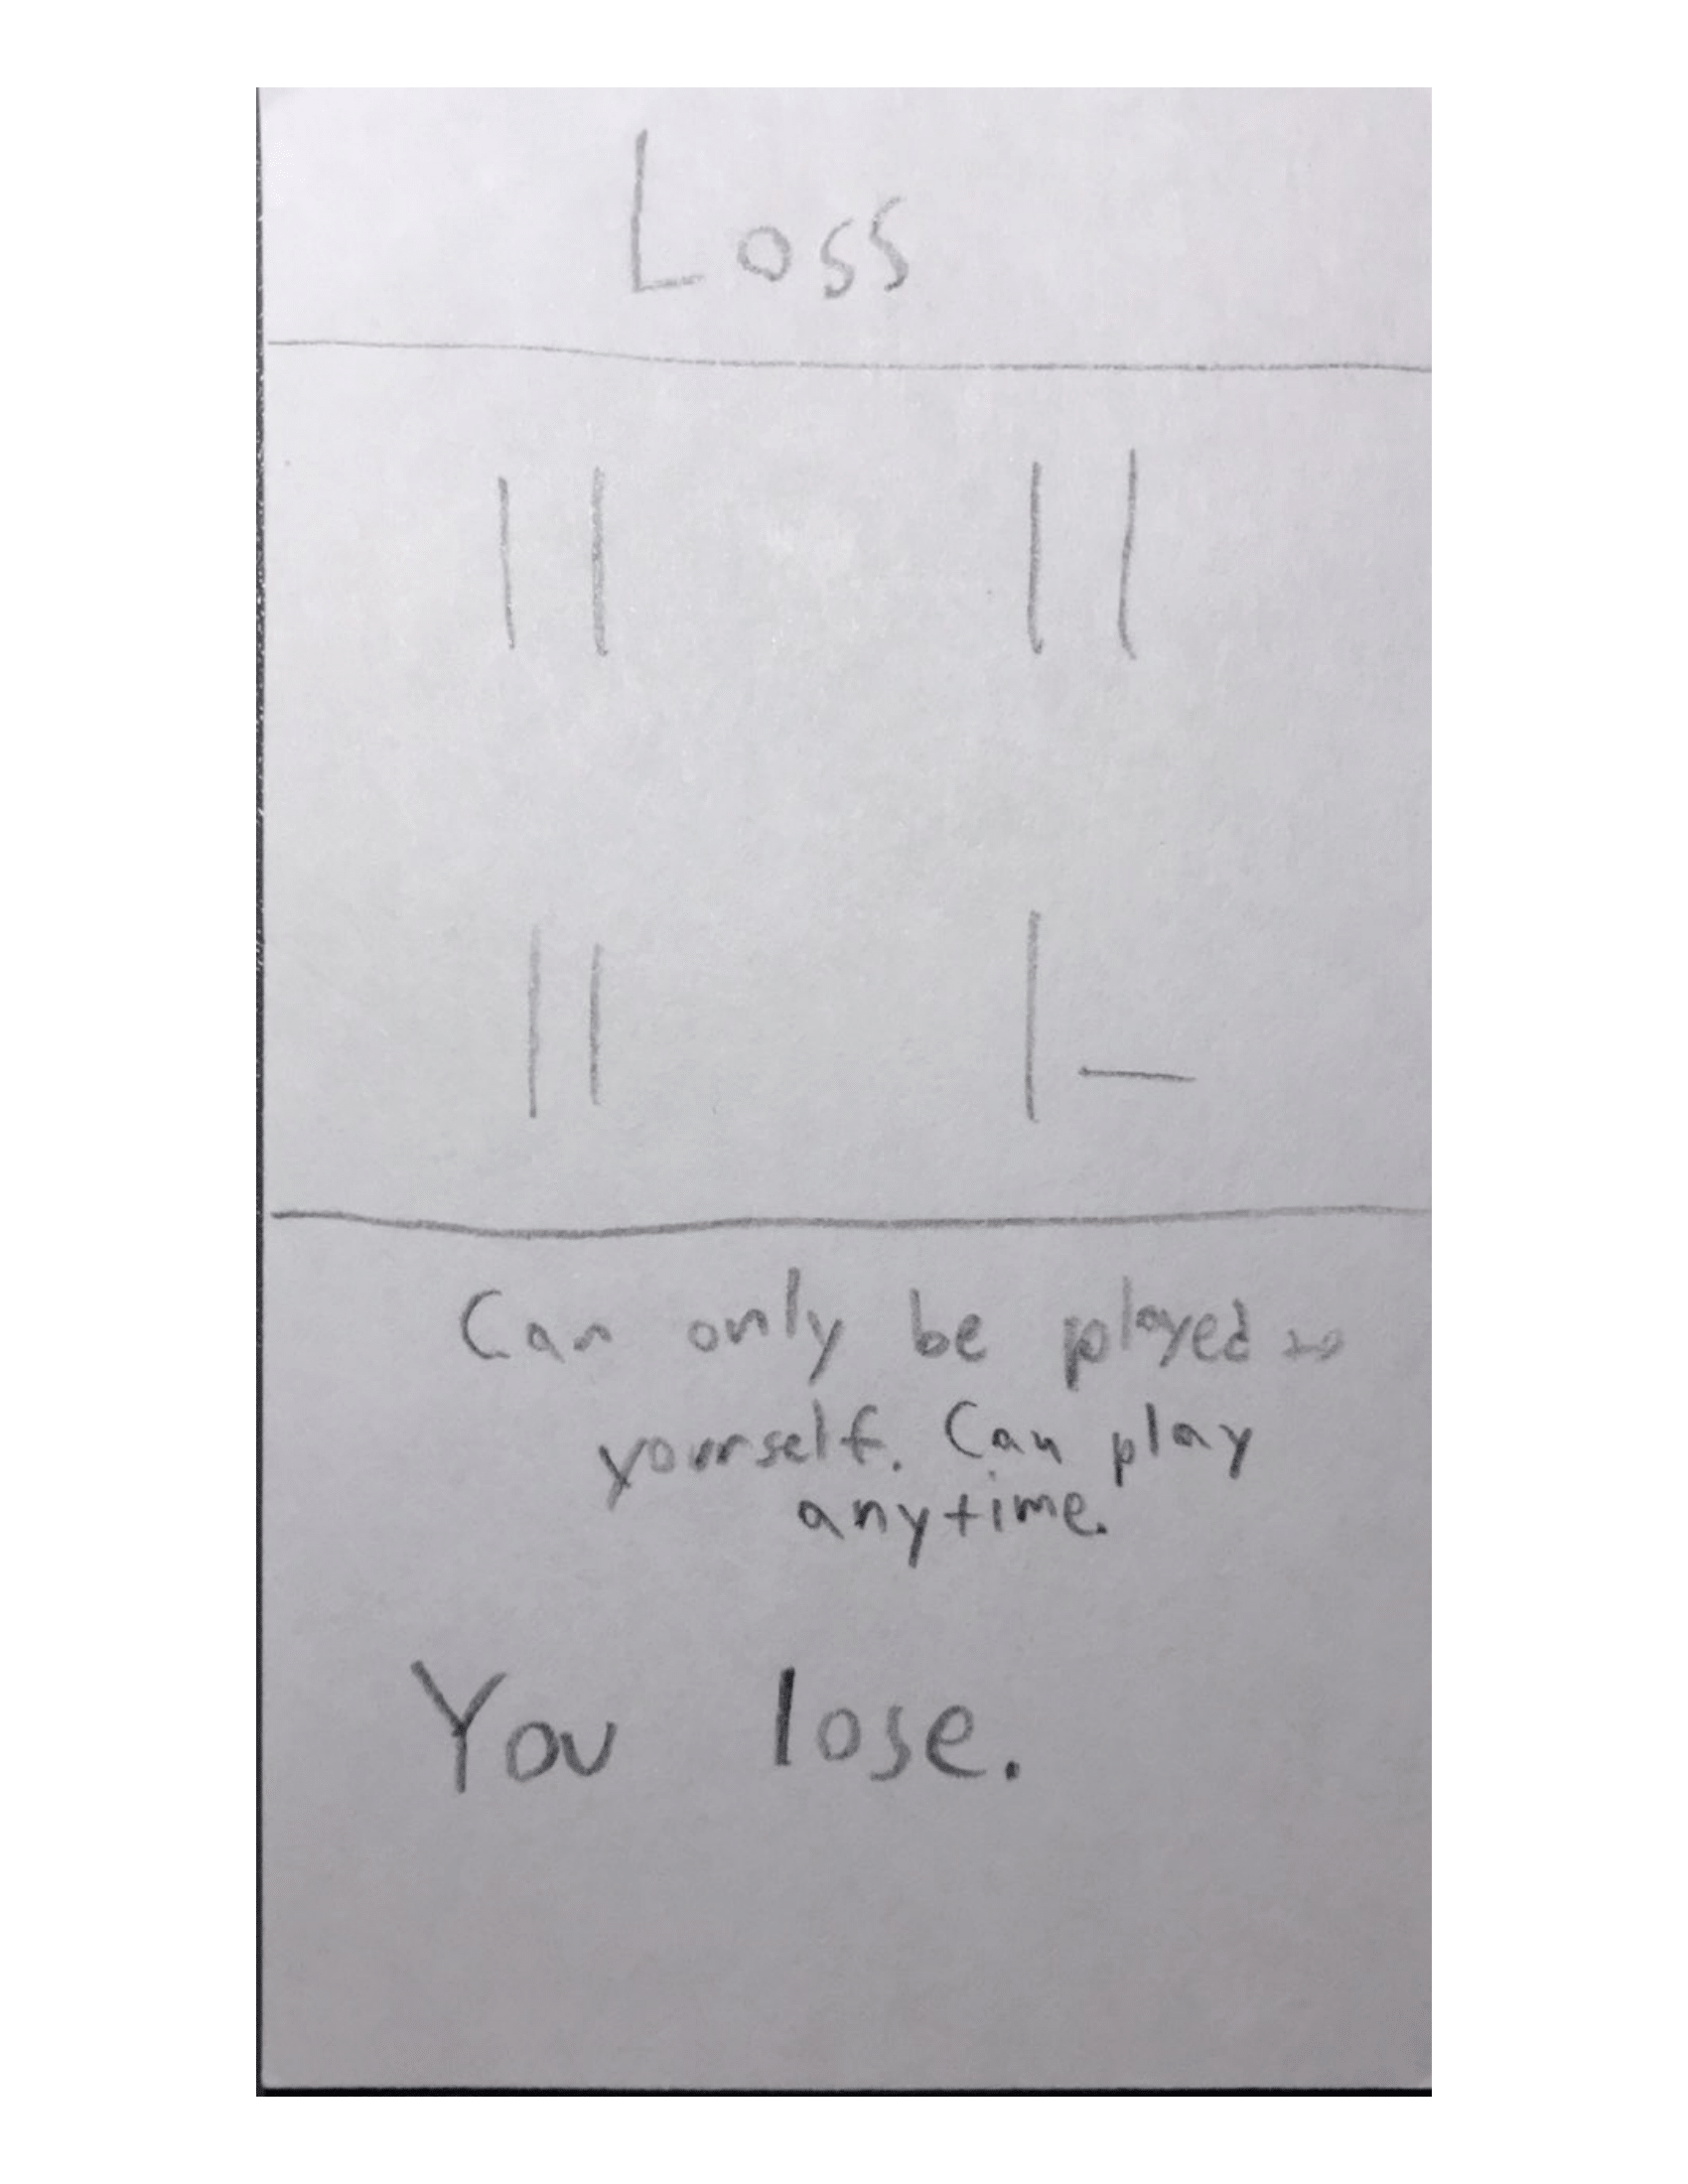 Loss
Can only be played
yourself. Can play
anytime.
You lose.